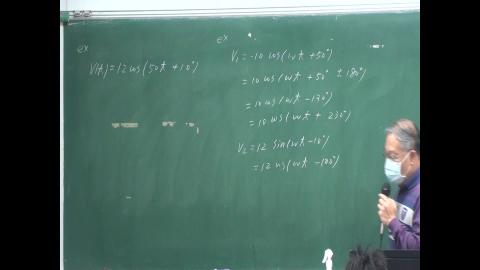 ex
V(t) = 12 cos(50t + 10°)
ex
V₁ = -10 cos(ωt + 50°)
= 10 cos(ωt + 50° ± 180°)
= 10 cos(ωt - 130°)
= 10 cos(ωt + 230°)
V₂ = 12 sin(ωt - 10°)
= 12 cos(ωt - 100°)